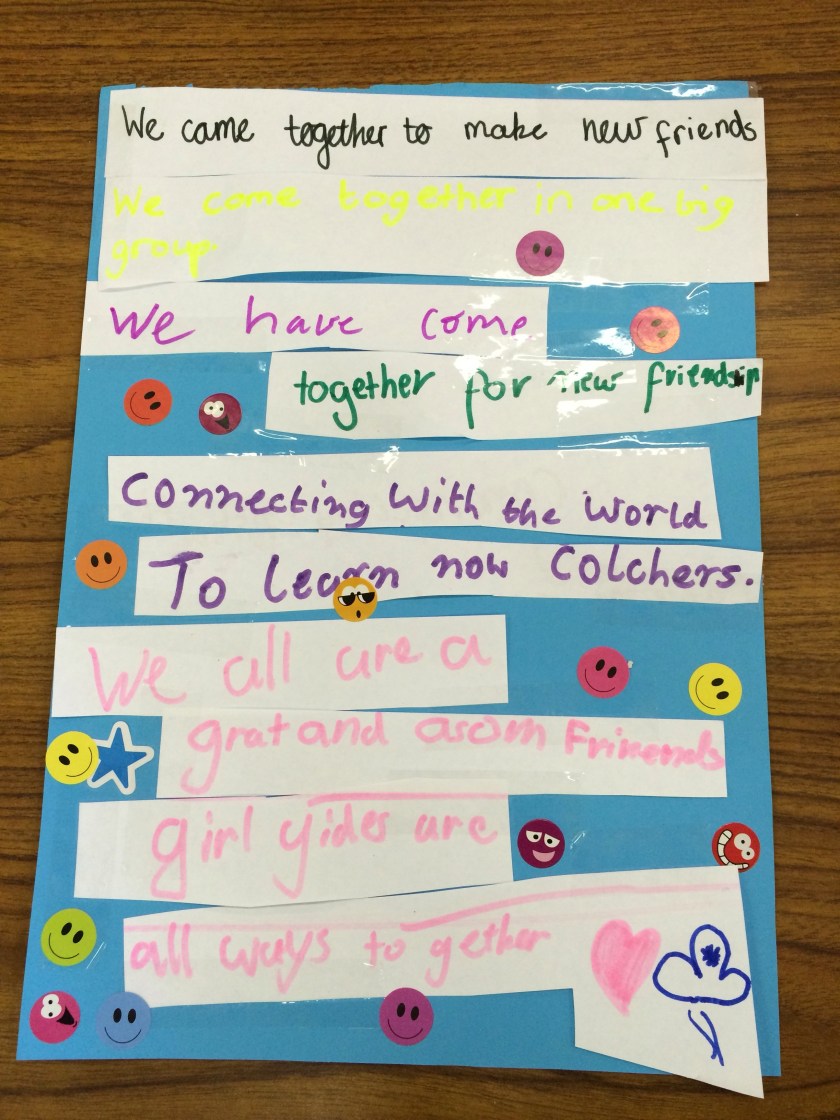 We came together to make new friends
We come together in one big
group.
We have come
together for new friendsip
Connecting With the World
To learn now Colchers.
We all are a
grat and asom Frinends
girl gides are
all ways to gether